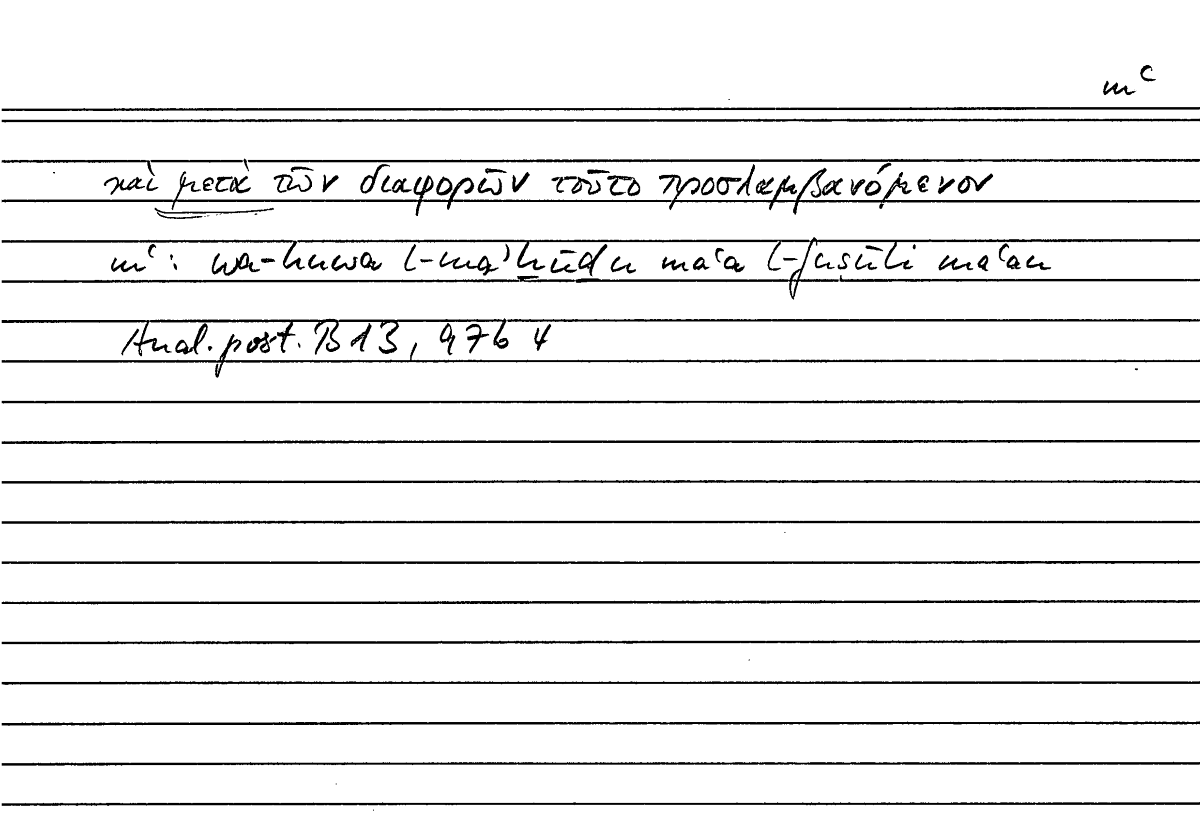 mᶜ
καὶ μετὰ τῶν διαφορῶν τοῦτο προσλαμβανόμενον
mᶜ: wa-huwa l-maʾḫūḏu maʿa l-fuṣūli maʿan
Anal. post. B 13, 97b 4